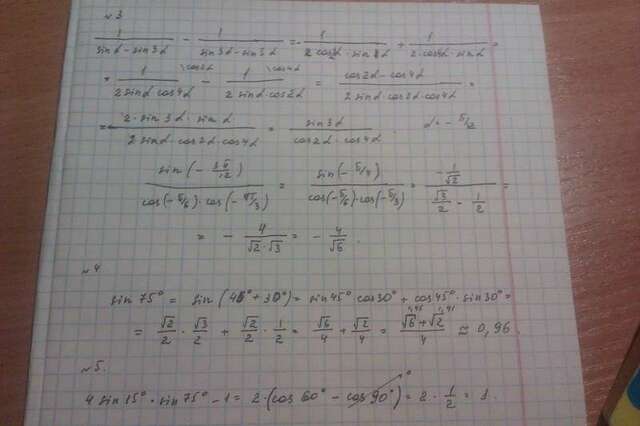 №3
1/(sinα - sin3α) - 1/(sin3α - sin5α) = - 1/(2cos2α · sinα) + 1/(2·cos4α·sinα) =
= 1/(2sinα cos4α) \cos2α - 1/(2 sinα cos2α) \cos4α = (cos2α - cos4α)/(2 sinα·cos2α·cos4α) =
= (2·sin3α · sinα)/(2 sinα·cos2α·cos4α) = sin3α/(cos2α·cos4α) . α = - π/12
sin(- 3π/12)/(cos(-π/6)·cos(-π/3)) = sin(-π/4)/(cos(-π/6)·cos(-π/3)) = (- 1/√2)/(√3/2 · 1/2) =
= - 4/(√2·√3) = - 4/√6 .
№4
sin 75° = sin(45°+30°) = sin45°·cos30° + cos45°·sin30° =
= √2/2 · √3/2 + √2/2 · 1/2 = √6/4 + √2/4 = (√6+√2)/4 ≈ 0,96 .
№5.
4 sin 15° · sin 75° - 1 = 2·(cos 60° - cos 90°) 0 = 2 · 1/2 = 1 .